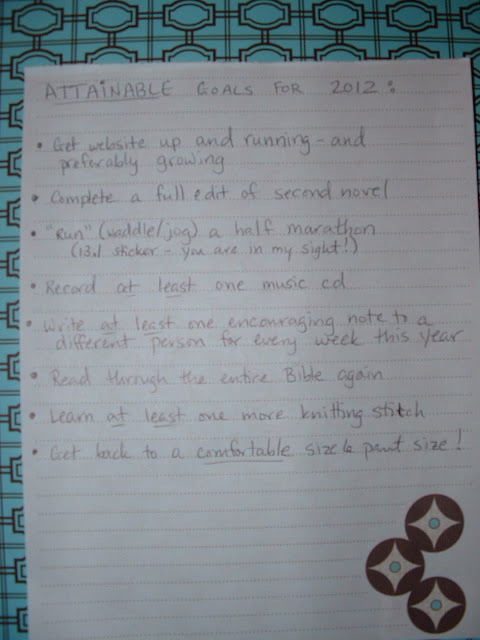 ATTAINABLE GOALS FOR 2012:
• Get website up and running - and
preferably growing
• Complete a full edit of second novel
• "Run" (waddle/jog) a half marathon
(13.1 sticker - you are in my sight!)
• Record at least one music cd
• Write at least one encouraging note to a
different person for every week this year
• Read through the entire Bible again
• Learn at least one more knitting stitch
• Get back to a comfortable size 6 pant size!